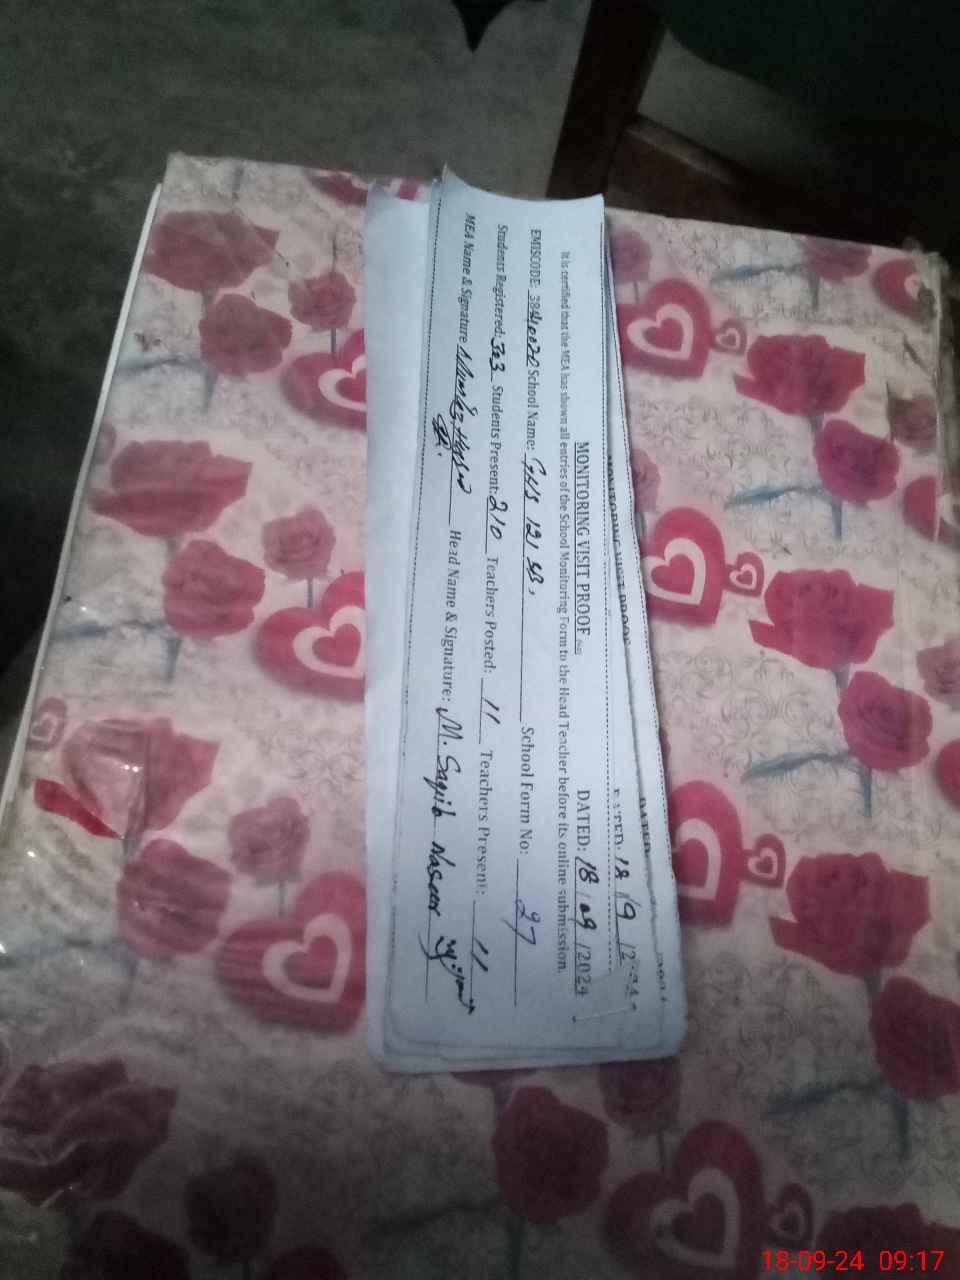 MONITORING VISIT PROOF DATED: 18/09/2024
It is certified that the MEA has shown all entries of the School Monitoring Form to the Head Teacher before its online submission.
EMISCODE: School Name: GHS 121 SB, School Form No: 27
Students Registered: 303 Students Present: 210 Teachers Posted: 11 Teachers Present: 11
MEA Name & Signature Head Name & Signature: M. Saqib Naseer
MONITORING VISIT PROOF
DATED: 18/9/2
DATED
18-09-24 09:17